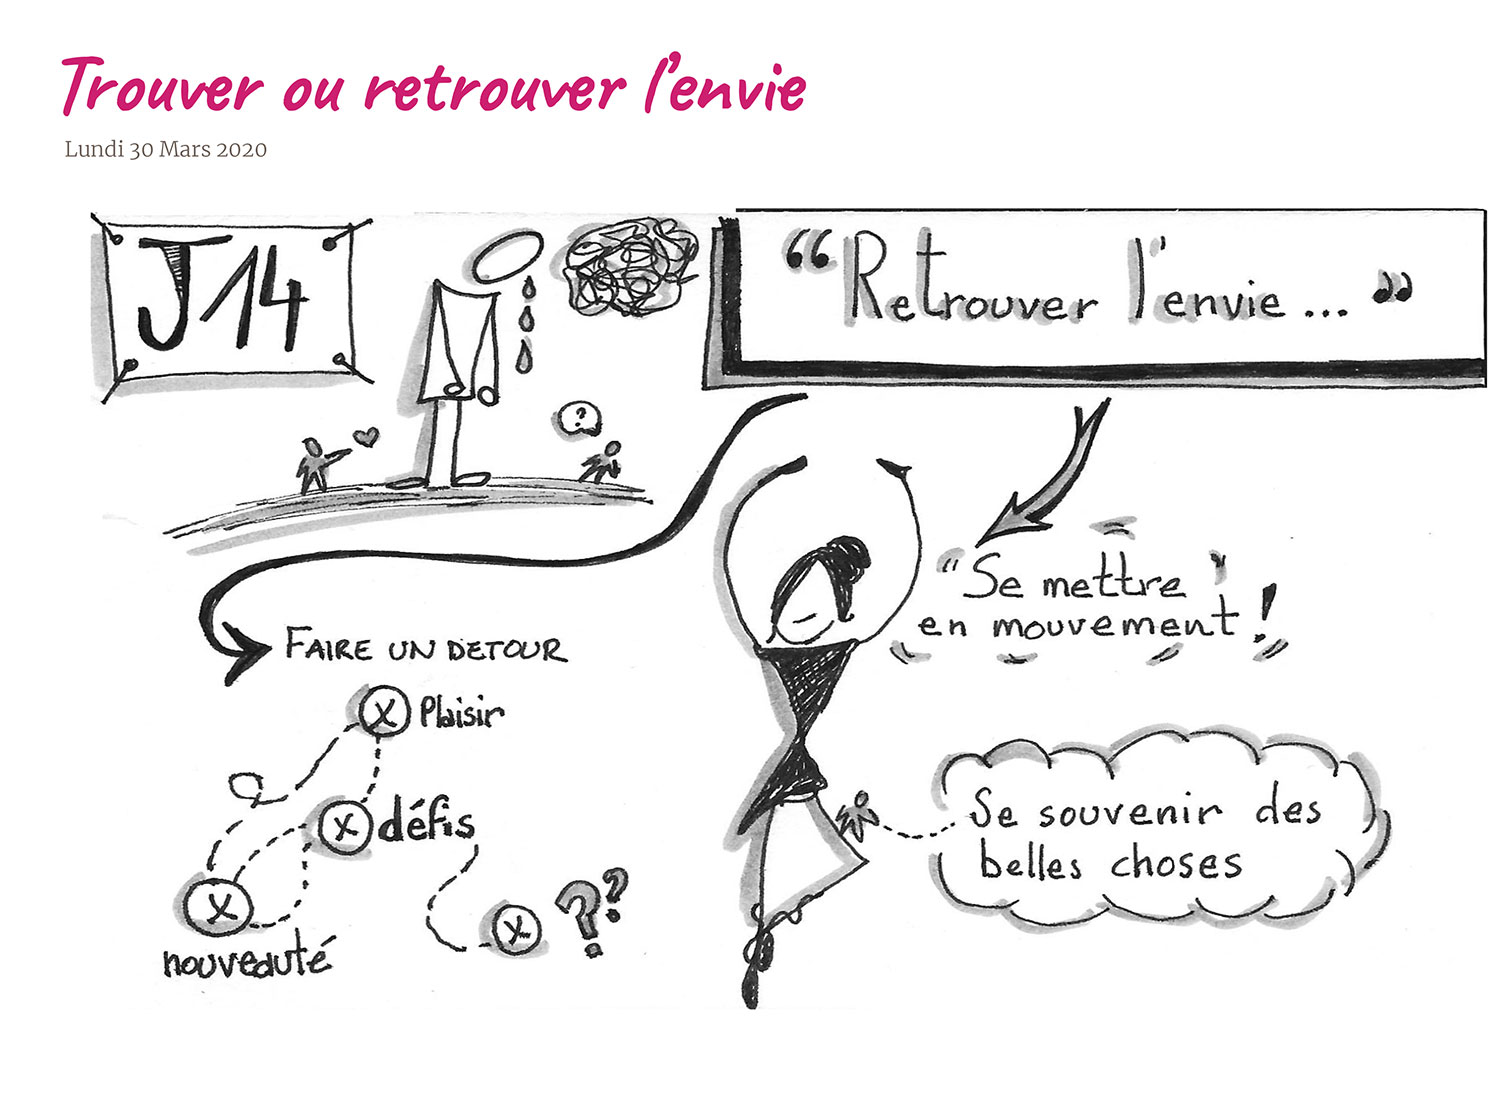 Trouver ou retrouver l'envie
Lundi 30 Mars 2020
J14
?
“Retrouver l'envie... „
"Se mettre "
en mouvement !
FAIRE UN DETOUR
X Plaisir
X défis
X
nouveauté
X... ??
Se souvenir des
belles choses